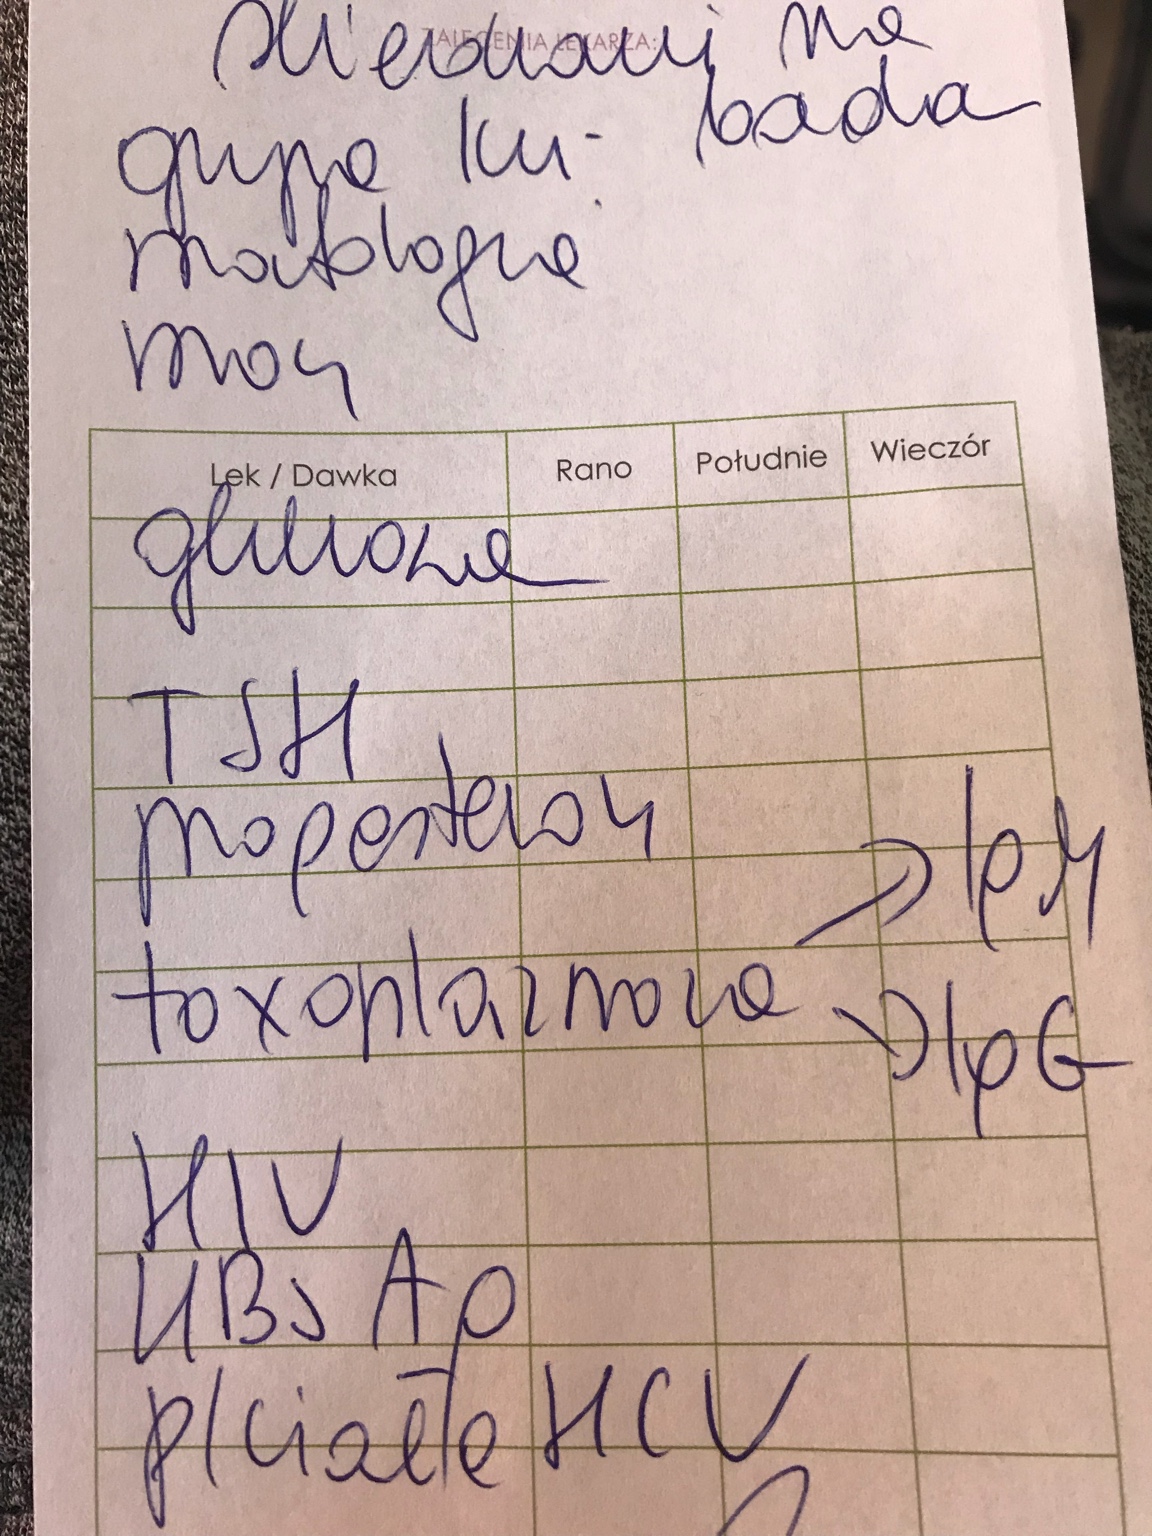 ZALECENIA LEKARZA:
skierowani na
grupa krwi bada
matologia
mocz
Lek / Dawka Rano Południe Wieczór
glukoza
TSH
progesteron
toxoplazmoza → IgM
→ IgG
HIV
HBs Ag
p/ciała HCV